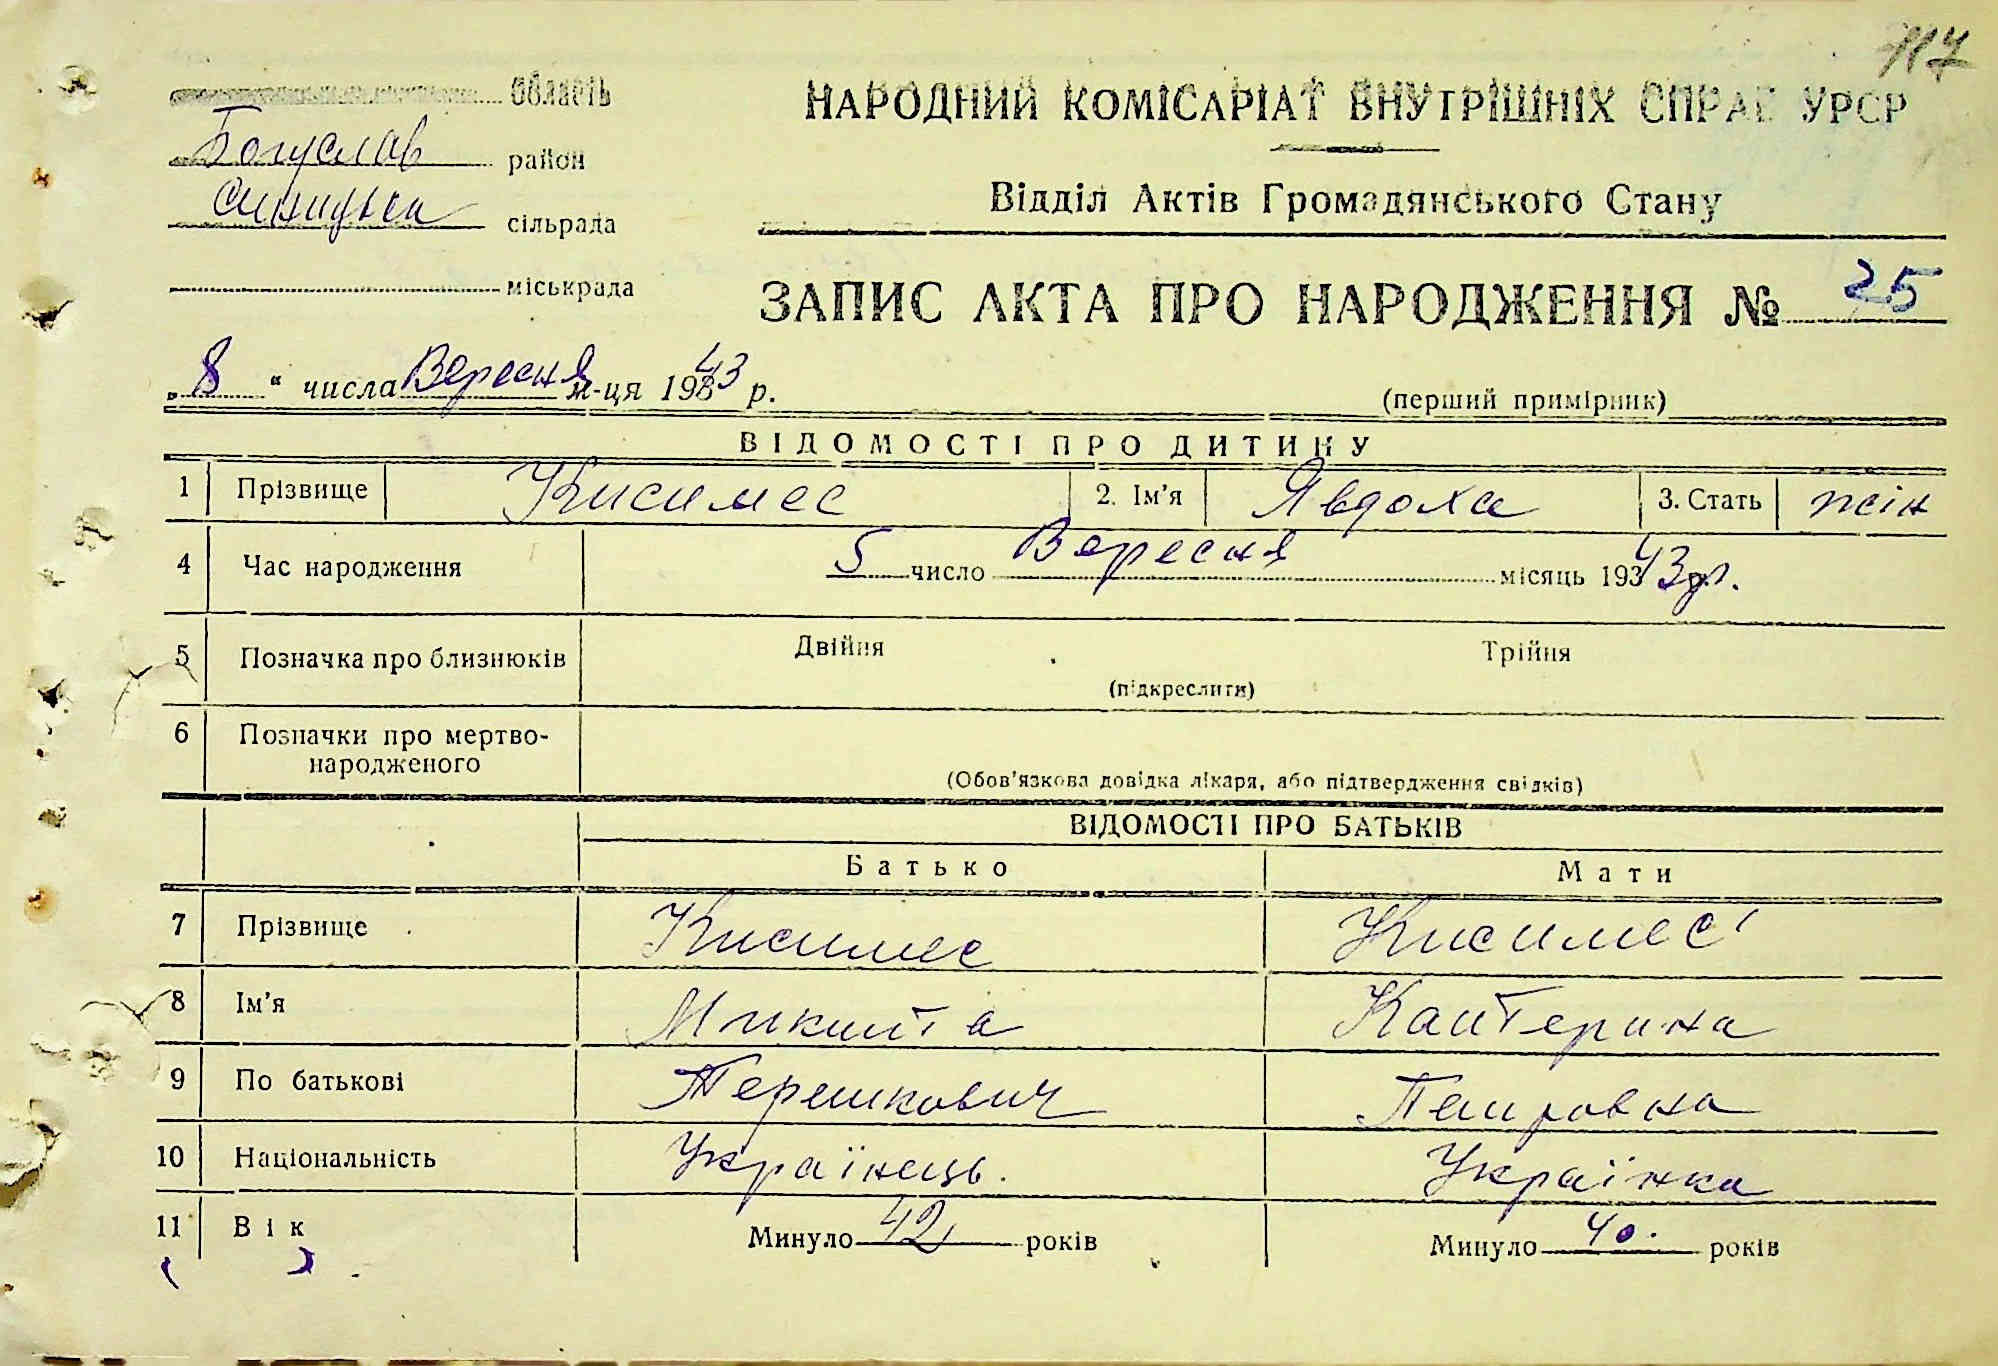 117
область
НАРОДНИЙ КОМІСАРІАТ ВНУТРІШНІХ СПРАВ УРСР
Богуслав район
Синицька сільрада
Відділ Актів Громадянського Стану
міськрада
ЗАПИС АКТА ПРО НАРОДЖЕННЯ № 25
„8“ числа Вересня м-ця 1943 р.
(перший примірник)
ВІДОМОСТІ ПРО ДИТИНУ
1 Прізвище Кисимес 2. Ім'я Явдоха 3. Стать жін
4 Час народження 5 число Вересня місяць 1943 р.
5 Позначка про близнюків Двійня Трійня
(підкреслити)
6 Позначки про мертво-
народженого
(Обов'язкова довідка лікаря, або підтвердження свідків)
ВІДОМОСТІ ПРО БАТЬКІВ
Батько Мати
7 Прізвище Кисимес Кисимес
8 Ім'я Микита Катерина
9 По батькові Терешкович Петровна
10 Національність Українець. Українка
11 Вік Минуло 42 років Минуло 40. років